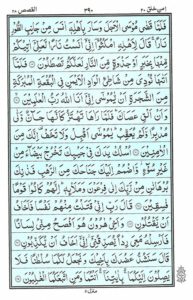 امن خلق ٢٠ ٣٩٠ القصص ٢٨
فَلَمَّا قَضٰى مُوْسَى الْاَجَلَ وَسَارَ بِاَهْلِهٖٓ اٰنَسَ مِنْ جَانِبِ الطُّوْرِ
نَارًا قَالَ لِاَهْلِهِ امْكُثُوْٓا اِنِّىْٓ اٰنَسْتُ نَارًا لَّعَلِّىْٓ اٰتِيْكُمْ
مِّنْهَا بِخَبَرٍ اَوْ جَذْوَةٍ مِّنَ النَّارِ لَعَلَّكُمْ تَصْطَلُوْنَ فَلَمَّآ
اَتٰىهَا نُوْدِىَ مِنْ شَاطِئِ الْوَادِ الْاَيْمَنِ فِى الْبُقْعَةِ الْمُبٰرَكَةِ
مِنَ الشَّجَرَةِ اَنْ يّٰمُوْسٰٓى اِنِّىْٓ اَنَا اللّٰهُ رَبُّ الْعٰلَمِيْنَ
وَاَنْ اَلْقِ عَصَاكَ فَلَمَّا رَاٰهَا تَهْتَزُّ كَاَنَّهَا جَآنٌّ وَّلّٰى
مُدْبِرًا وَّلَمْ يُعَقِّبْ يٰمُوْسٰٓى اَقْبِلْ وَلَا تَخَفْ اِنَّكَ مِنَ
الْاٰمِنِيْنَ اُسْلُكْ يَدَكَ فِىْ جَيْبِكَ تَخْرُجْ بَيْضَآءَ مِنْ
غَيْرِ سُوْٓءٍ وَّاضْمُمْ اِلَيْكَ جَنَاحَكَ مِنَ الرَّهْبِ فَذٰنِكَ
بُرْهَانٰنِ مِنْ رَّبِّكَ اِلٰى فِرْعَوْنَ وَمَلَا۟ئِهٖ اِنَّهُمْ كَانُوْا قَوْمًا
فٰسِقِيْنَ قَالَ رَبِّ اِنِّىْ قَتَلْتُ مِنْهُمْ نَفْسًا فَاَخَافُ
اَنْ يَّقْتُلُوْنِ وَاَخِىْ هٰرُوْنُ هُوَ اَفْصَحُ مِنِّىْ لِسَانًا
فَاَرْسِلْهُ مَعِىَ رِدْاً يُّصَدِّقُنِىْٓ اِنِّىْٓ اَخَافُ اَنْ يُّكَذِّبُوْنِ
قَالَ سَنَشُدُّ عَضُدَكَ بِاَخِيْكَ وَنَجْعَلُ لَكُمَا سُلْطٰنًا فَلَا
يَصِلُوْنَ اِلَيْكُمَا بِاٰيٰتِنَآ اَنْتُمَا وَمَنِ اتَّبَعَكُمَا الْغٰلِبُوْنَ
منزل ٥